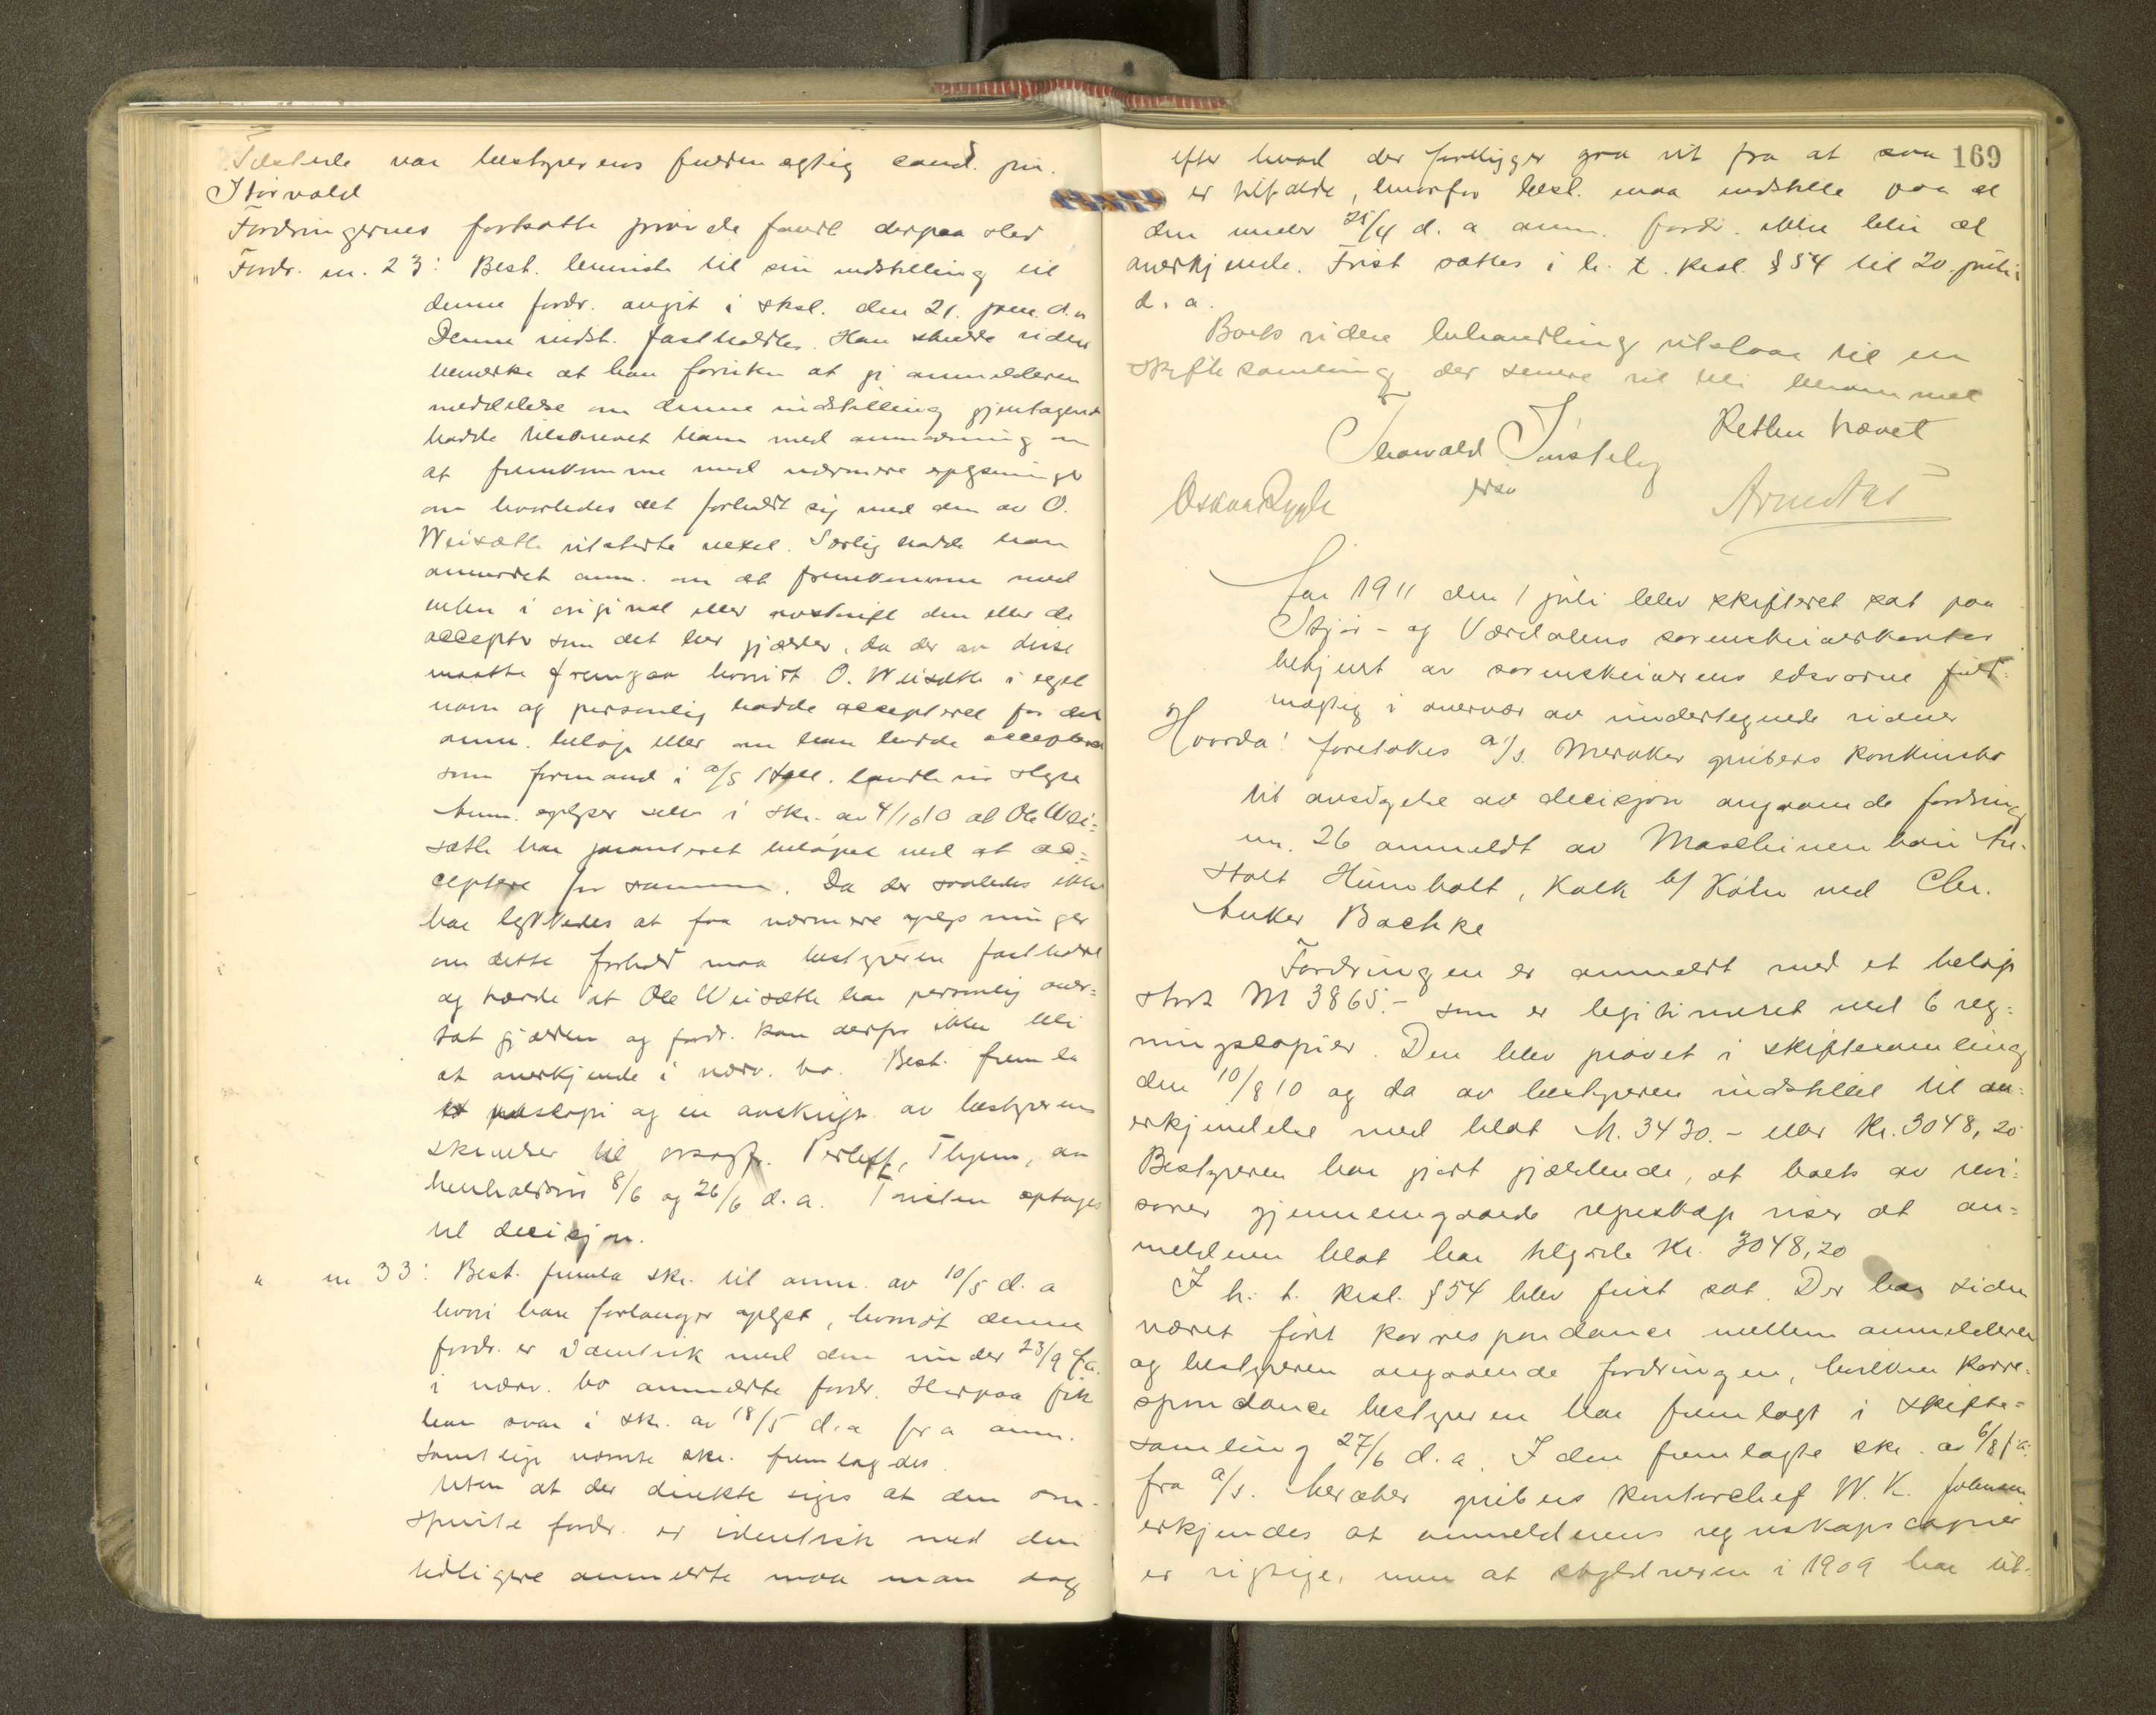 Tilstede var bestyrerens fuldmægtig cand. jur.
Störvold
Fordringernes fortsatte prövelse fandt derpaa sted
Fordr. nr. 23: Best. henviste til sin indstilling til
denne fordr. angit i sksl. den 21. jan. d. a
Denne indst. fastholdtes. Han skulde videre
bemerke at han foruten at gi anmelderen
meddelelse om denne indstilling gjentagende
hadde tilskrevet ham med anmodning om
at fremkomme med nærmere oplysninger
om hvorledes det forholdt sig med den av O.
Weisæth utstedte vexel. Særlig hadde han
anmodet anm. om at fremkomme med
enten i original eller avskrift den eller de
accepter som det her gjælder, da der av disse
maatte fremgaa hvorvidt O. Weisæth i eget
navn og personlig hadde acceptert for det
anm. beløp eller om han hadde acceptert
som formand i a/s styre
Anm. oplyser selv i skr. av 4/10 10 at Ole Wei=
sæth har garanteret beløpet ved at ac=
ceptere for samme. Da det saaledes ikke
har lykkedes at faa nærmere oplysninger
om dette forhold maa bestyreren fastholde
og hævde at Ole Weisæth har personlig over=
tat gjælden og fordr. kan derfor ikke bli
at anerkjende i nærv. bo. Best. fremla
og en avskrift av bestyrerens
skrivelser til ovsagf. Thjem, av
henholdsvis 8/6 og 26/6 d. a. Tvisten optages
til decisjon.
" nr 33: Best. fremla skr. til anm. av 10/5 d. a
hvori han forlanger oplyst, hvorvidt denne
fordr. er identisk med den under 23/9 f. a.
i nærv. bo anmeldte fordr. Herpaa fik
han svar i skr. av 18/5 d. a fra anm.
Samtlige nævnte skr. fremlagdes
Uten at der direkte siges at den om-
spurte fordr. er identisk med den
tidligere anmeldte maa man dog
169
efter hvad der foreligger gaa ut fra at saa
er tilfælde, hvorfor best. maa indstille paa at
den under 25/4 d. a anm. fordr. ikke blir at
anerkjende. Frist sattes i h. t. kksl. § 54 til 20. juli
d. a.
Boets videre behandling utstaar til en
skiftesamling der senere vil bli berammet
Retten hævet
Oskar Rygh
Aar 1911 den 1 juli blev skifteret sat paa
Stjör- og Værdalens sorenskriverkontor
betjent av sorenskriverens edsvorne fuld-
mægtig i overvær av undertegnede vidner
Hvorda: foretokes a/s. Meraker grubers konkursbo
til avsigelse av decisjon angaaende fordring
nr. 26 anmeldt av Maschinenbau An-
stalt Humbolt, Kalk b/ Köln ved Chr.
Anker Bachke
Fordringen er anmeldt med et beløp
stort M 3865.- som er legitimeret ved 6 reg=
ningscopier. Den blev prøvet i skiftesamling
den 10/8 10 og da av bestyreren indstillet til an=
erkjendelse med blot M. 3430.- eller Kr. 3048,20
Bestyreren har gjort gjældende, at boets av revi=
sorer gjennemgaaede regnskap viser at an=
melderen blot har tilgode Kr. 3048,20
I h. t. kksl. § 54 blev frist sat. Der har siden
været ført korrespondance mellem anmelderen
og bestyreren angaaende fordringen, hvilken korre-
spondance bestyreren har fremlagt i skifte=
samling 27/6 d. a. I den fremlagte skr. av 6/8 f. a.
fra a/s. Meraker grubers kontorchef W. K. Johnsen
erkjendes at anmelderens regnskapscopier
er rigtige, men at skyldneren i 1909 har ut-